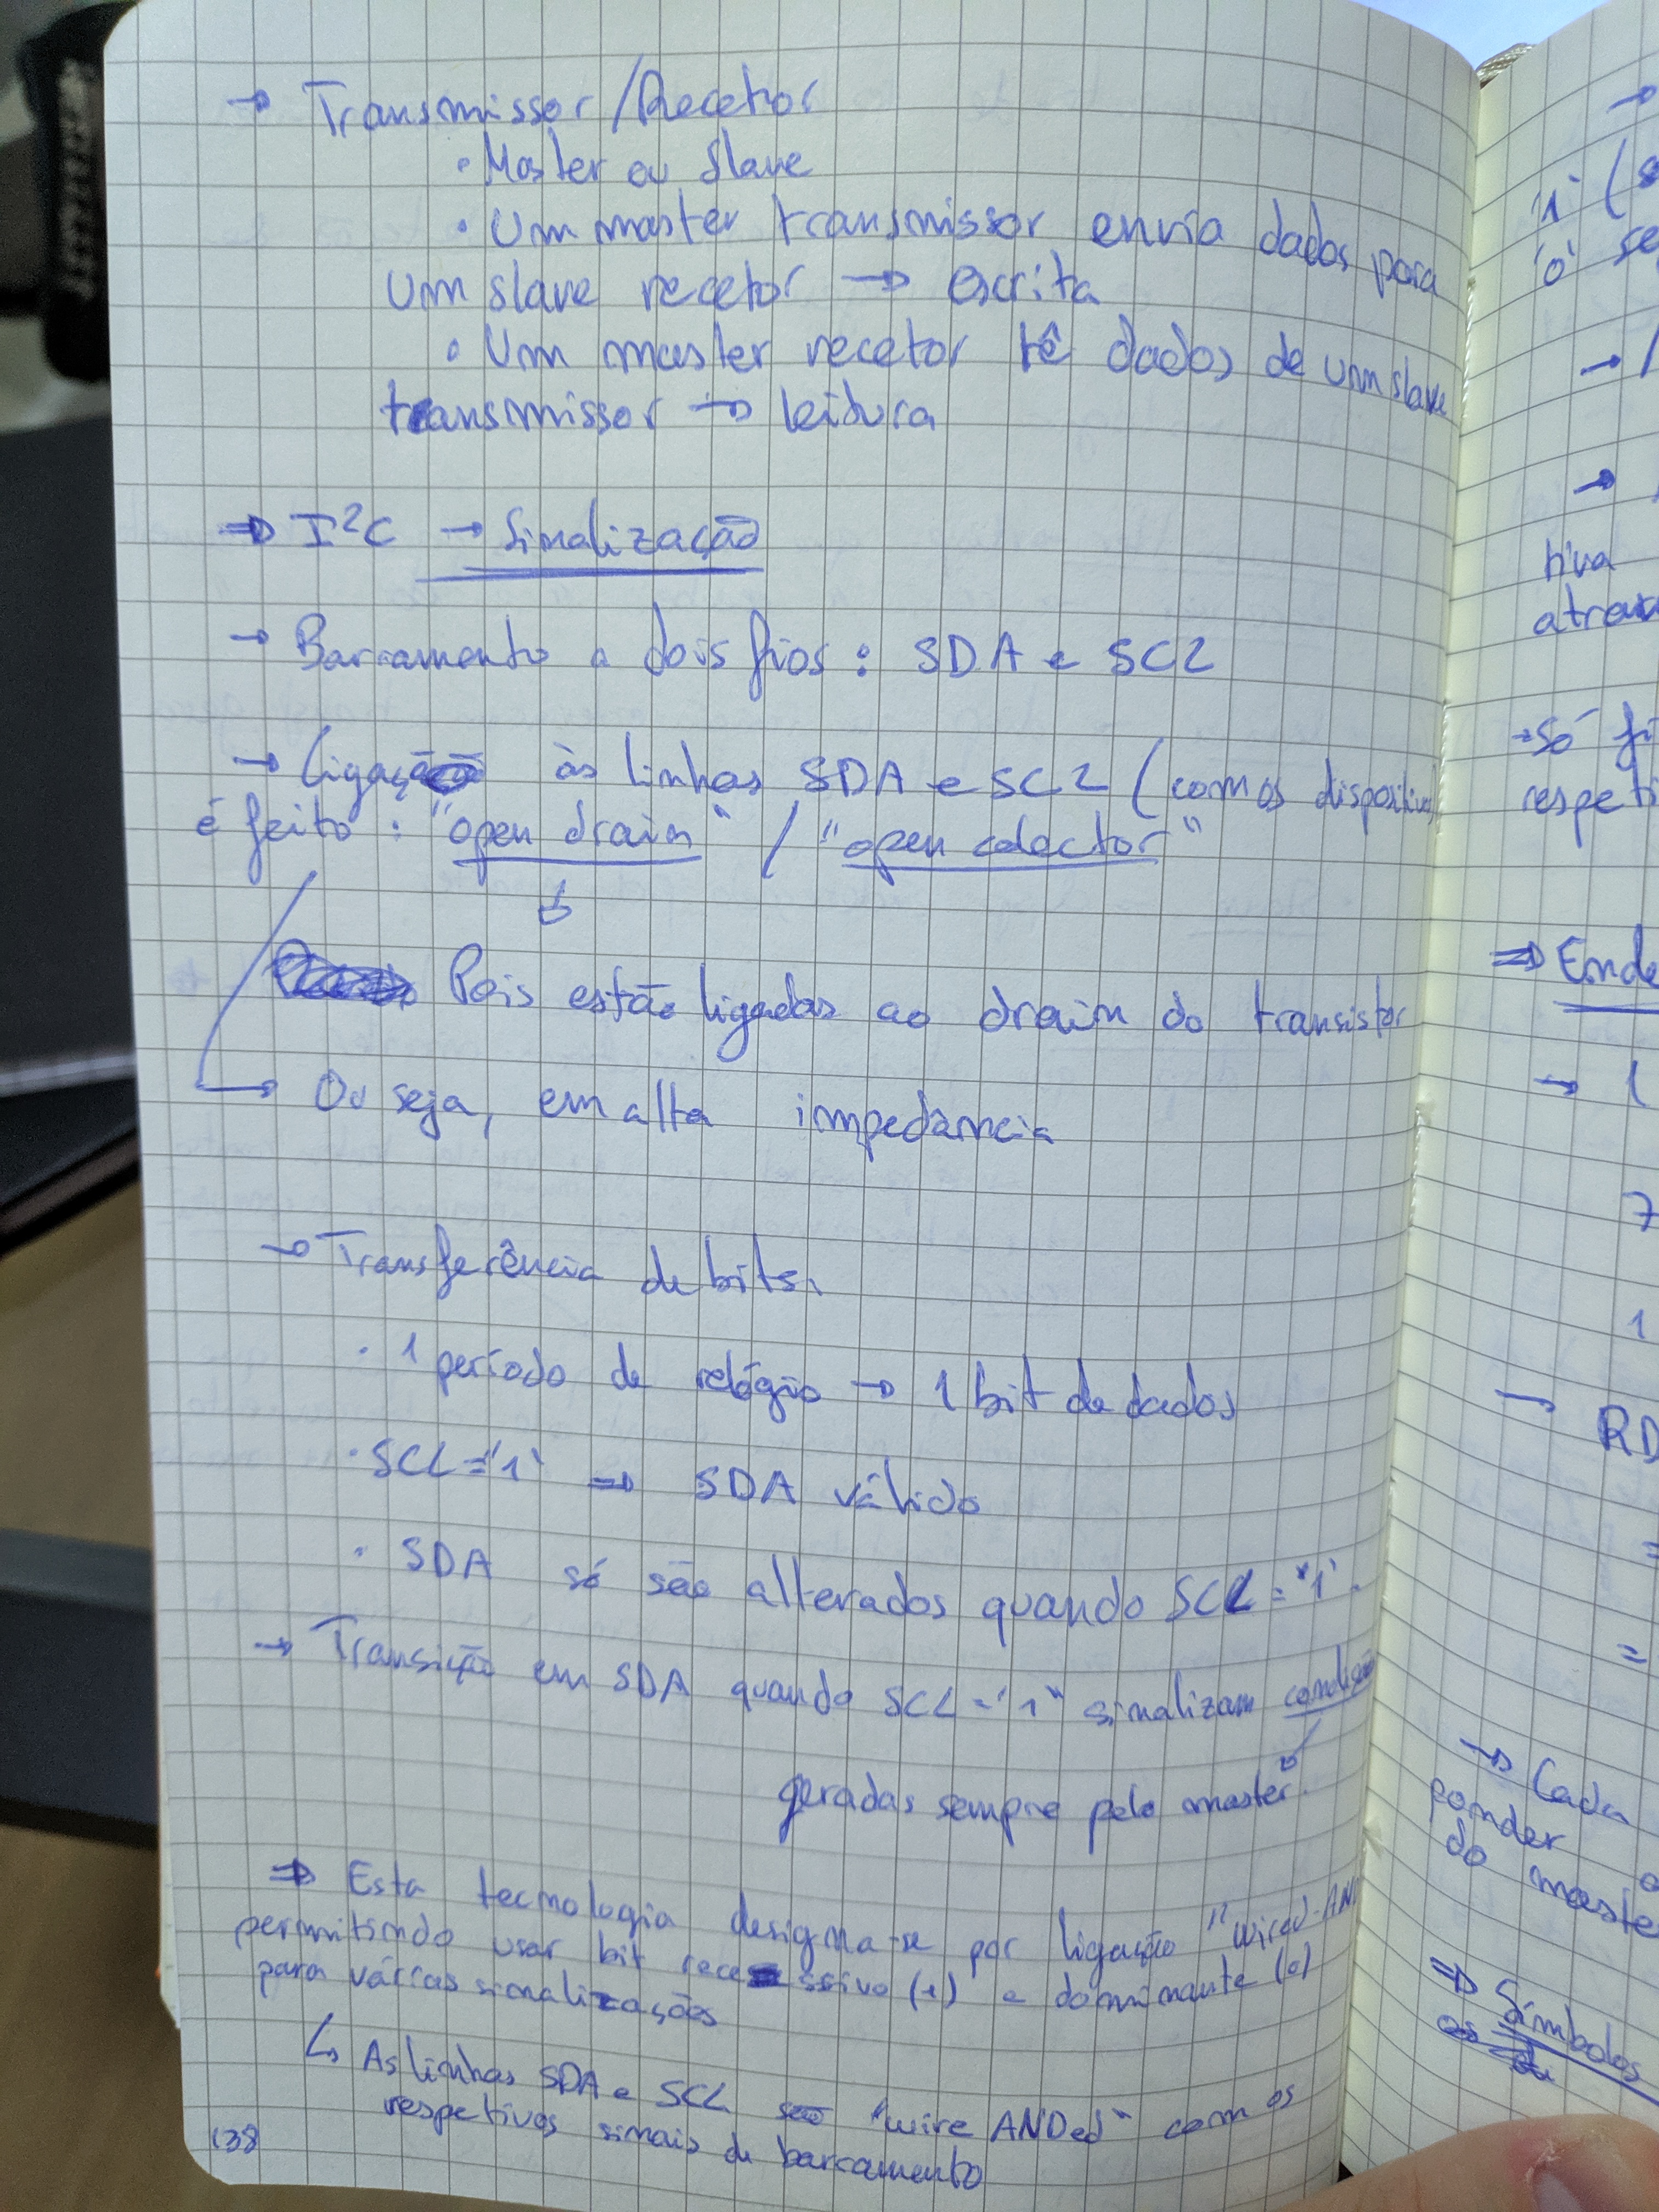 → Transmissor/Recetor
• Master ou Slave
• Um master transmissor envia dados para
um slave recetor → escrita
• Um master recetor lê dados de um slave
transmissor → leitura
⇒ I²C → Sinalização
→ Barramento a dois fios: SDA e SCL
→ Ligação às linhas SDA e SCL (com os dispositivos
é feito: "open drain" / "open colector"
Pois estão ligadas ao drain do transistor
→ Ou seja, em alta impedância
→ Transferência de bits.
• 1 período de relógio → 1 bit de dados
• SCL='1' ⇒ SDA válido
• SDA só são alterados quando SCL='1'.
→ Transição em SDA quando SCL='1' sinalizam condição
geradas sempre pelo master.
⇒ Esta tecnologia designa-se por ligação "wired-AN
permitindo usar bit recessivo (1) e dominante (0)
para várias sinalizações
↳ As linhas SDA e SCL são "wire ANDed" com os
respetivos sinais de barramento
138
→
'1' (s
'0' se
→
→
tiva
atrav
→ Só fi
respeti
⇒ Ende
→
7
1
→ RD
=
=
→ Cada
ponder
do maste
⇒ Símbolos